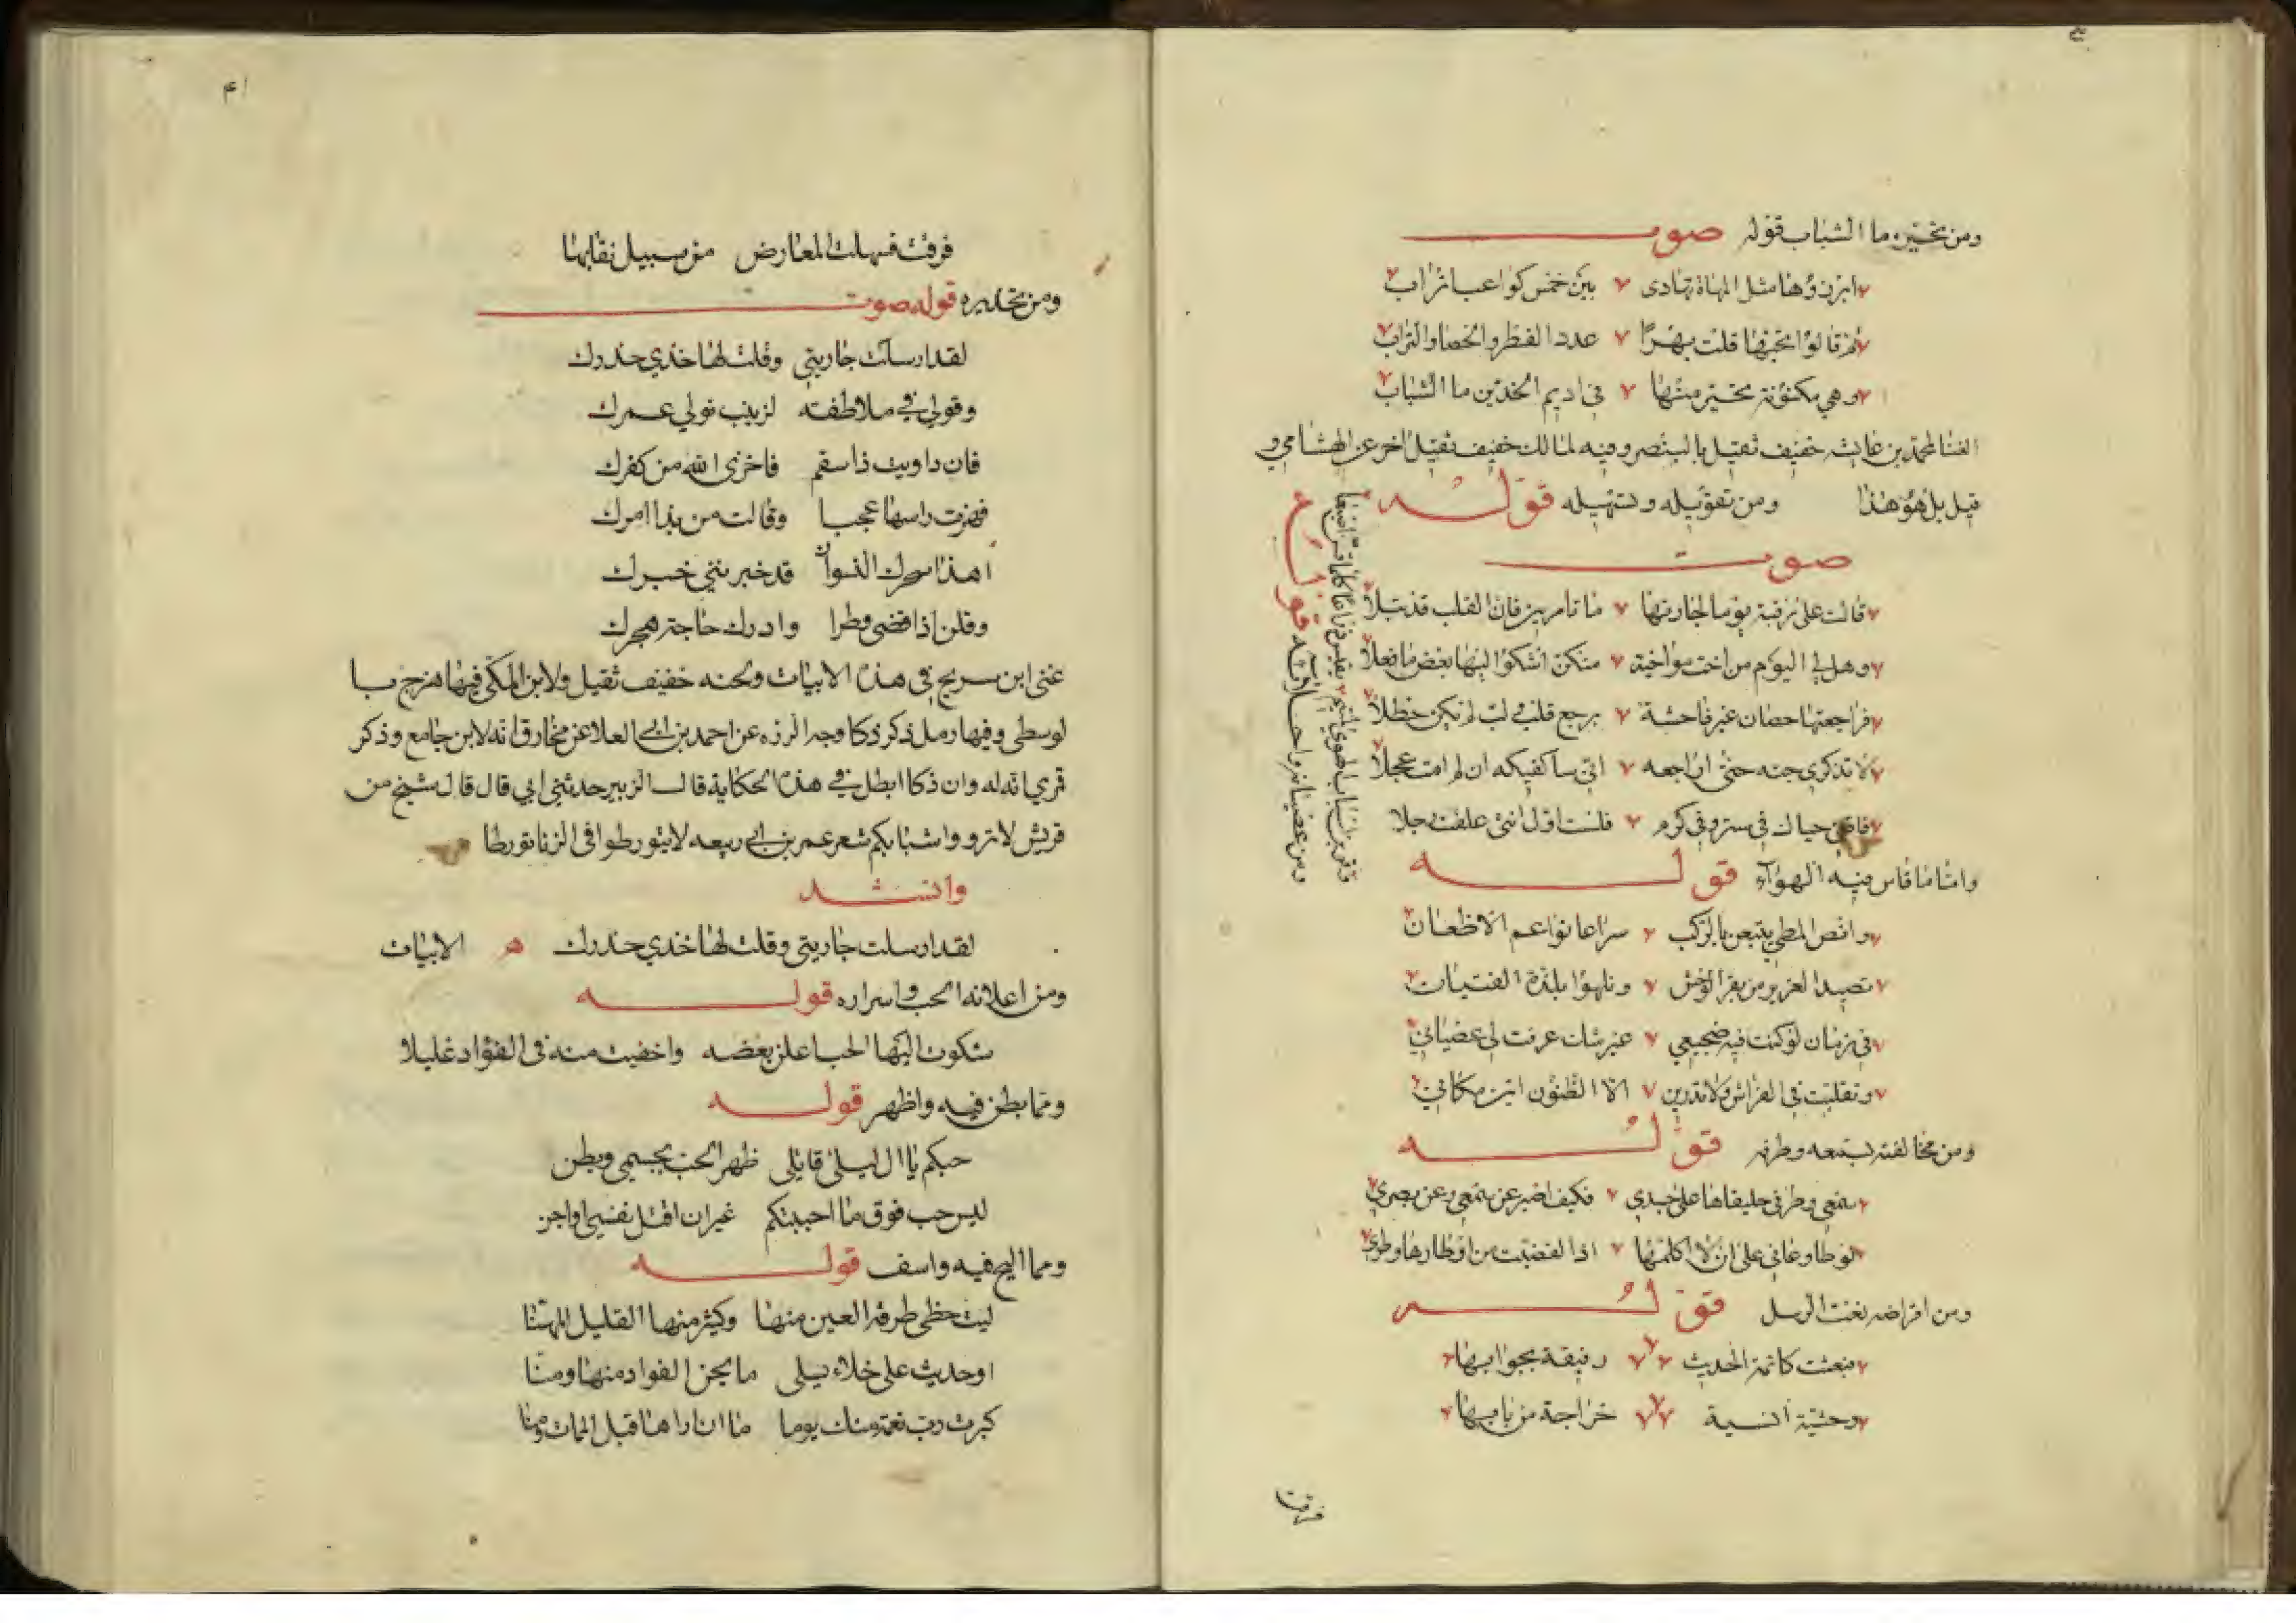 ومن تحيره ما الشباب قوله صوت
ابرزوها مثل المهاة تهادى بين خمس كواعب اتراب
ثم قالوا تحبها قلت بهرًا عدد القطر والحصا والتراب
وهي مكنونة تحير منها في اديم الخدين ما الشباب
الغنا لمحمد بن عايشه خفيف ثقيل بالبنصر وفيه لمالك خفيف ثقيل اخر عن الهشامي و
قيل بل هو هذا ومن تقويله وتسهيله قوله
صوت
قالت على رقبة يوما لجارتها ما تامرين فان القلب قد تبلا
وهل لي اليوم من اخت مواخية منكن اشكو اليها بعض ما فعلا
فراجعتها حصان غير فاحشة برجع قلب في لب لم تكن خطلا
لا تذكري حبه حتى اراجعه اني ساكفيكه ان لم امت عجلا
فاقني حياك في ستر وفي كرم فلست اول انثى علقت رجلا
واما ما قاس فيه الهواء قوله
وانص المطي يتبعن بالركب سراعا نواعم الاظعان
نصيد الغرير من بقر الوحش ونلهوا بلذة الفتيان
في زمان لو كنت فيه ضجيعي غير شك عرفت لي عصياني
وتقلبت في الفراش ولا تدرين الا الظنون اين مكاني
ومن مخالفته لسمعه وطرفه قوله
سمعي وطرفي حليفاها على جسدي فكيف اصبر عن سمعي وعن بصري
لو طاوعاني على ان لا اكلمها اذا لقضيت من اوطارها وطري
ومن اقراضه نعت الرسل قوله
فبعثت كاتمة الحديث رفيقة بجوابها
وحشية انسية خراجة من بابها
فرقت
۴۱
فرقت فسهلت المعارض من سبيل نقابها
ومن تحذيره قوله صوت
لقد ارسلت جاريتي وقلت لها خذي حذرك
وقولي في ملاطفته لزينب نولي عمرك
فان داويت ذا سقم فاخزى الله من كفرك
فهزت راسها عجبا وقالت من بذا امرك
اهذا سحرك النسوان قد خبرنني خبرك
وقلن اذا قضى وطرا وادرك حاجة هجرك
غنى ابن سريج في هذه الابيات ولحنه خفيف ثقيل ولابن المكي فيها هزج با
لوسطى وفيها رمل ذكر ذكا وجه الرزه عن احمد بن ابي العلا عن مخارق انه لابن جامع وذكر
قري انه له وان ذكا ابطل في هذه الحكاية قال الزبير حدثني ابي قال قال شيخ من
قريش لا تروواشبابكم شعر عمر بن ابي ربيعه لا يتورطوا في الزنا تورطا
وانشد
لقد ارسلت جاريتي وقلت لها خذي حذرك الابيات
ومن اعلانه الحب واسراره قوله
شكوت اليها الحب اعلن بعضه واخفيت منه في الفؤاد غليلا
ومما بطن فيه واظهر قوله
حبكم يا ال ليلى قاتلي ظهر الحب بجسمي وبطن
ليس حب فوق ما احببتكم غير ان اقتل نفسي او اجن
ومما الح فيه واسف قوله
ليت حظي طرفة العين منها وكثير منها القليل المهنا
او حديث على خلاء يسلى ما يجن الفواد منها ومنا
كبرت رب نعمة منك يوما ما ان اراها قبل الممات ومنا